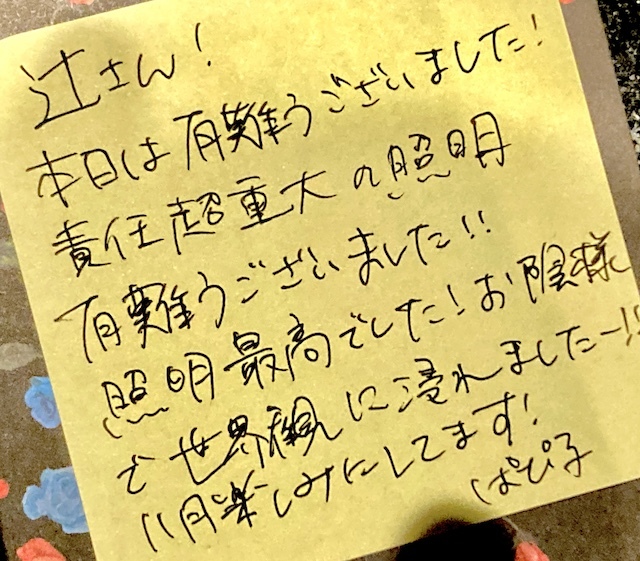 辻さん!
本日は有難うございました!
責任超重大の照明
有難うございました!!
照明最高でした!お陰様
で世界観に浸れましたー!!
11月楽しみにしてます!
ぱぴ子